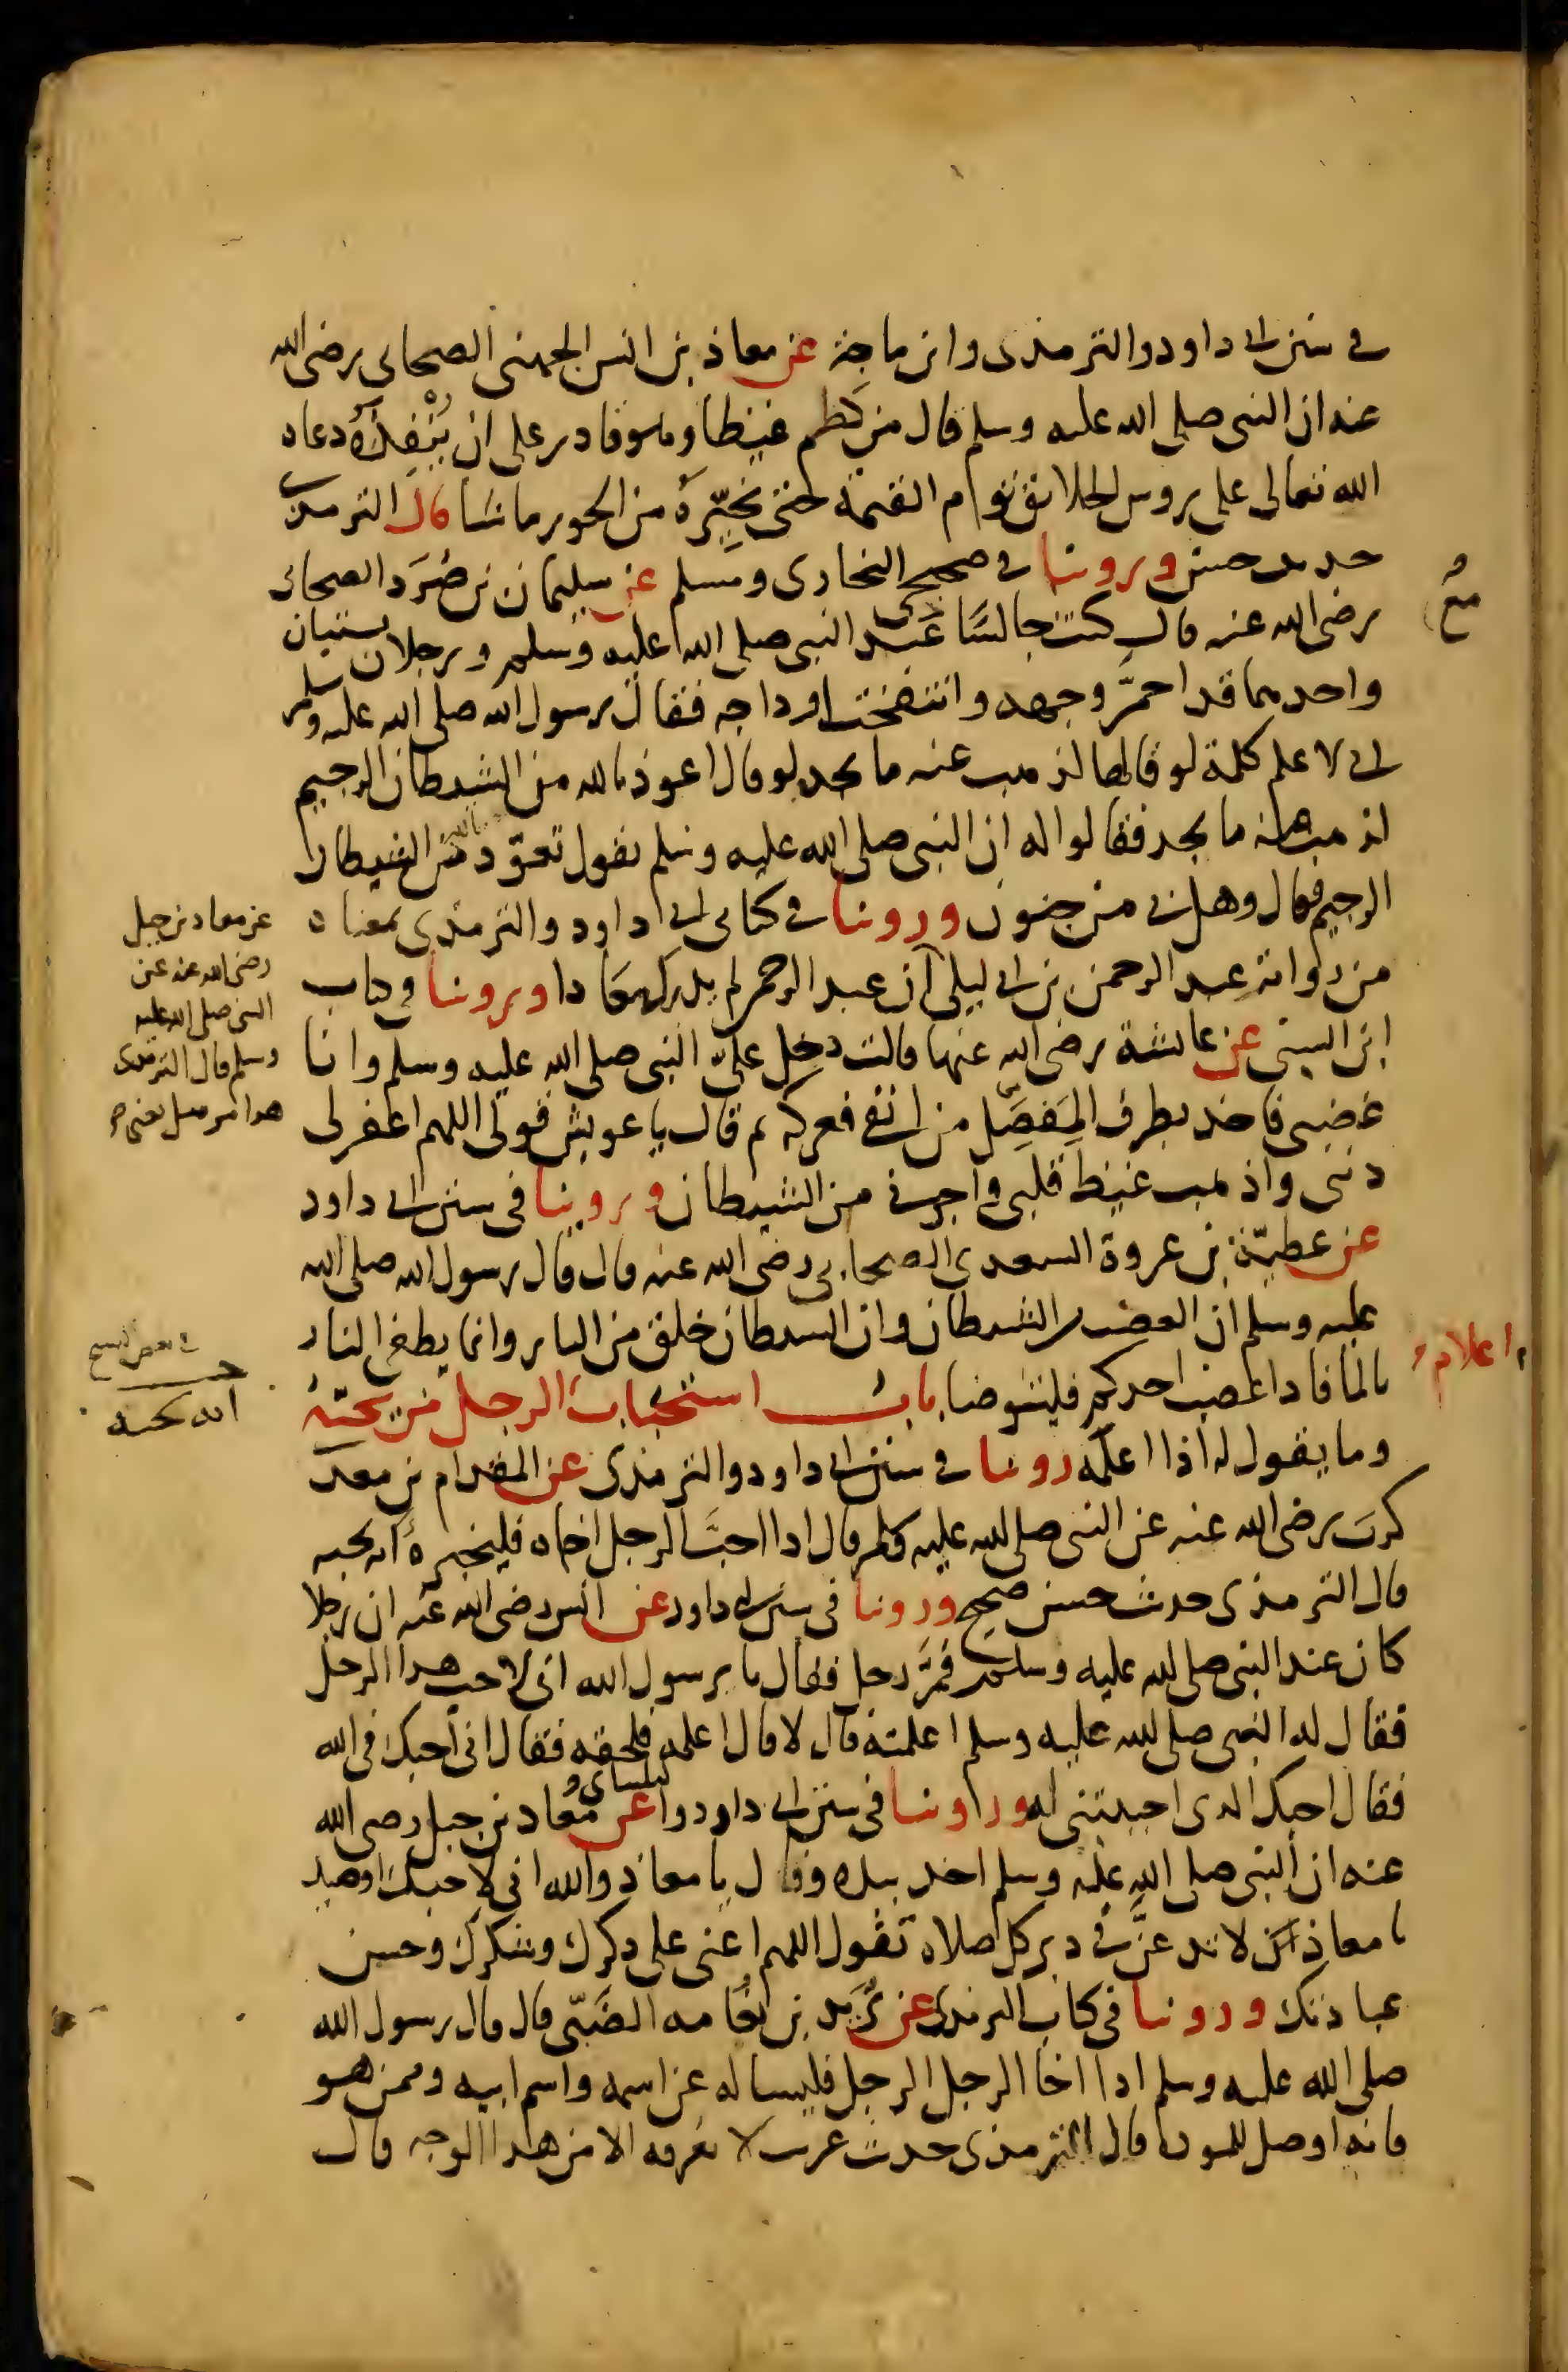 في سنن ابي داود والترمذي وابن ماجة عن معاذ بن انس الجهني الصحابي رضي الله
عنه ان النبي صلى الله عليه وسلم قال من كظم غيظا وهو قادر على ان يُنْفِذَهُ دعاه
الله تعالى على روس الخلائق يوم القيمة حتى يخيّره من الحور ما شا قال الترمذي
حديث حسن وروينا في صحيحي البخاري ومسلم عن سليمان بن صُرَد الصحابي
رضي الله عنه قال كنت جالسًا عند النبي صلى الله عليه وسلم ورجلان يستبان
واحدهما قد احمرّ وجهه وانتفخت اوداجه فقال رسول الله صلى الله عليه وسلم
اني لاعلم كلمة لو قالها لذهب عنه ما يجد لو قال اعوذ بالله من الشيطان الرجيم
لذهب عنه ما يجد فقالوا له ان النبي صلى الله عليه وسلم يقول تعوّذ بالله من الشيطان
الرجيم فقال وهل بي من جنون وروينا في كتابي ابي داود والترمذي بمعناه
من رواية عبد الرحمن بن ابي ليلى ان عبد الرحمن لم يدرك معاذا وروينا في كتاب
عن معاذ بن جبل
رضي الله عنه عن
النبي صلى الله عليه
وسلم قال الترمذي
هذا مرسل يعني
ابن السني عن عائشة رضي الله عنها قالت دخل عليّ النبي صلى الله عليه وسلم وانا
غضبى فاخذ بطرف المِفصَل من انفي فعركه ثم قال يا عويش قولي اللهم اغفر لي
ذنبي واذهب غيظ قلبي واجرني من الشيطان وروينا في سنن ابي داود
عن عطيّة بن عروة السعدي الصحابي رضي الله عنه قال قال رسول الله صلى الله
عليه وسلم ان الغضب من الشيطان وان الشيطان خلق من النار وانما يطفئ النار
بالما فاذا غضب احدكم فليتوضا باب استحباب اعلام الرجل من يحبّه
في بعض النسخ
انه يحبه
وما يقول له اذا اعلمه روينا في سنن ابي داود والترمذي عن المقدام بن معدي
كرب رضي الله عنه عن النبي صلى الله عليه وسلم قال اذا احبّ الرجل اخاه فليخبره انه يحبه
قال الترمذي حديث حسن صحيح وروينا في سنن ابي داود عن انس رضي الله عنه ان رجلا
كان عند النبي صلى الله عليه وسلم فمرَّ رجل فقال يا رسول الله اني لاحب هذا الرجل
فقال له النبي صلى الله عليه وسلم اعلمته قال لا قال اعلمه فلحقه فقال اني احبك في الله
فقال احبك الذي احببتني له وروينا في سنن ابي داود والنسائي عن معاذ بن جبل رضي الله
عنه ان النبي صلى الله عليه وسلم اخذ بيده وقال يا معاذ والله اني لاحبك اوصيك
يا معاذ لا تدعنَّ في دبر كل صلاة تقول اللهم اعني على ذكرك وشكرك وحسن
عبادتك وروينا في كتاب الترمذي عن يزيد بن نعامه الضبّي قال قال رسول الله
صلى الله عليه وسلم اذا اخا الرجل الرجل فليساله عن اسمه واسم ابيه وممن هو
فانه اوصل للمودة قال الترمذي حديث غريب لا نعرفه الا من هذا الوجه قال